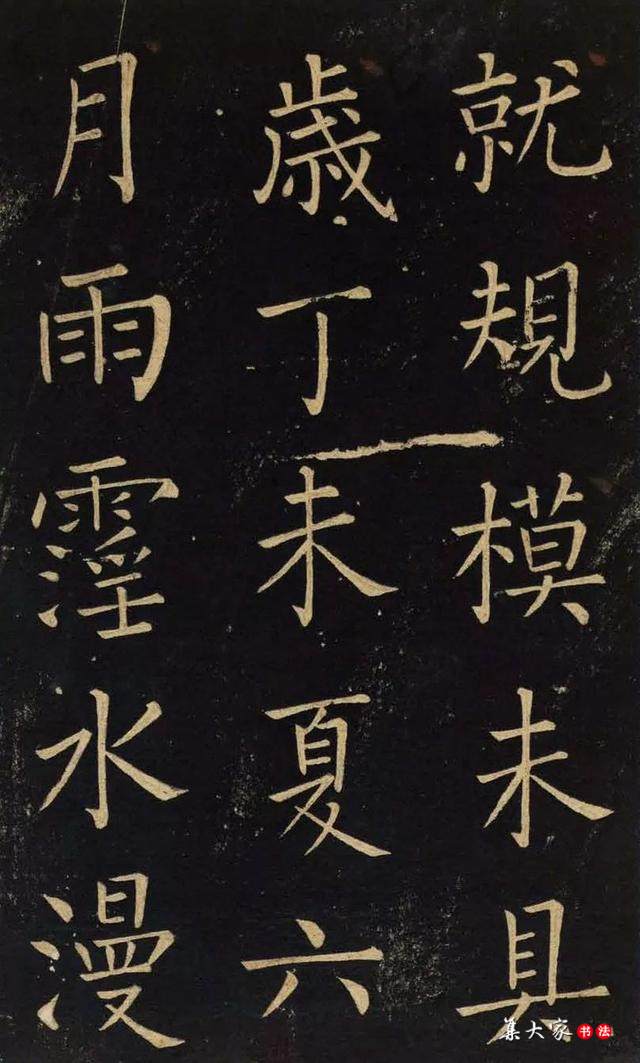 就規模未具
歲丁未夏六
月雨霪水漫
集大家书法